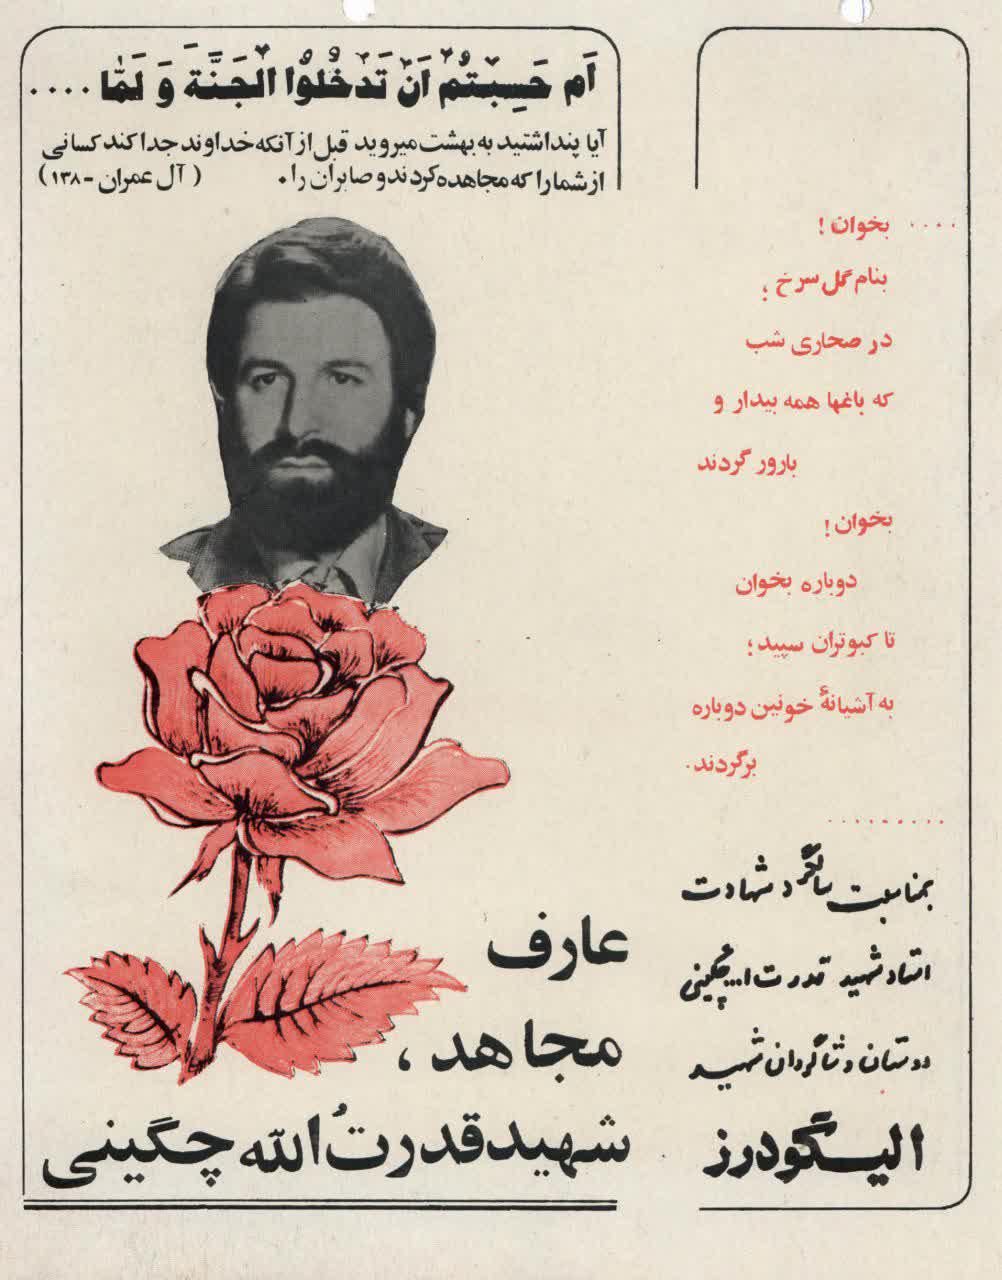 اَم حَسِبتُم اَن تَدخُلُوا الجَنَّةَ وَ لَمّا....
آیا پنداشتید به بهشت میروید قبل از آنکه خداوند جدا کند کسانی
از شما را که مجاهده کردند و صابران را. (آل عمران - ۱۳۸)
.... بخوان!
بنام گل سرخ؛
در صحاری شب
که باغها همه بیدار و
بارور گردند
بخوان!
دوباره بخوان
تا کبوتران سپید؛
به آشیانهٔ خونین دوباره
برگردند.
.........
بمناسبت سالگرد شهادت
استاد شهید قدرت ا... چگینی
دوستان و شاگردان شهید
الیگودرز
عارف
مجاهد،
شهید قدرتُ الله چگینی